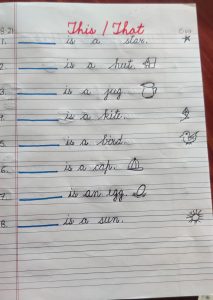 This / That
1. ______ is a star.
2. ______ is a hut.
3. ______ is a jug.
4. ______ is a kite.
5. ______ is a bird.
6. ______ is a cap.
7. ______ is an egg.
8. ______ is a sun.